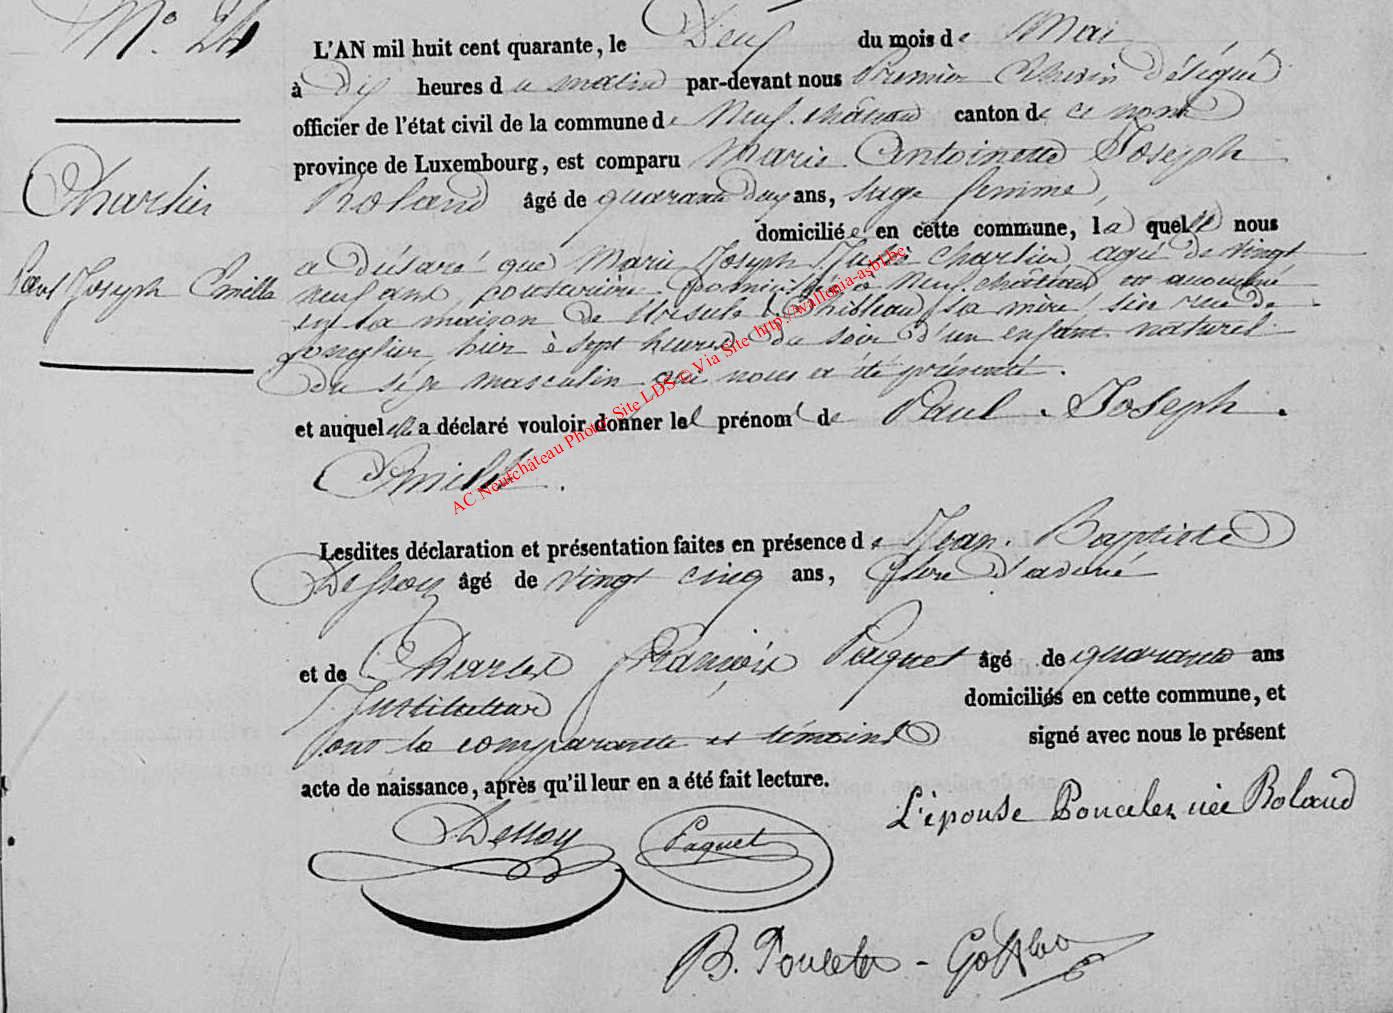 N° 24
L'AN mil huit cent quarante, le Deux du mois de Mai
à Dix heures du matin par-devant nous Premier Echevin délégué
officier de l'état civil de la commune de Neufchâteau canton de ce nom
province de Luxembourg, est comparu Marie Antoinette Joseph
Roland âgé de quarante deux ans, sage femme,
domiciliée en cette commune, laquelle nous
a déclaré que Marie Joseph Charlier agée de vingt
neuf ans, couturière domiciliée à Neufchâteau est accouchée
en la maison de Ursule sa mère, sise rue de
hier à sept heures du soir d'un enfant naturel
du sexe masculin qui nous a été présenté.
et auquel elle a déclaré vouloir donner le prénom de Paul Joseph
Emille.
Charlier
Paul Joseph Emille
Lesdites déclaration et présentation faites en présence de Jean Baptiste
Dessoy âgé de vingt cinq ans,
et de Charles François Paquet âgé de quarante ans
Instituteur domiciliés en cette commune, et
ont la comparante et témoins signé avec nous le présent
acte de naissance, après qu'il leur en a été fait lecture.
Dessoy Paquet L'épouse Poncelez née Roland
B. Poncelez
AC Neufchâteau Photo Site LDS © Via Site http://wallonia-asbl.be